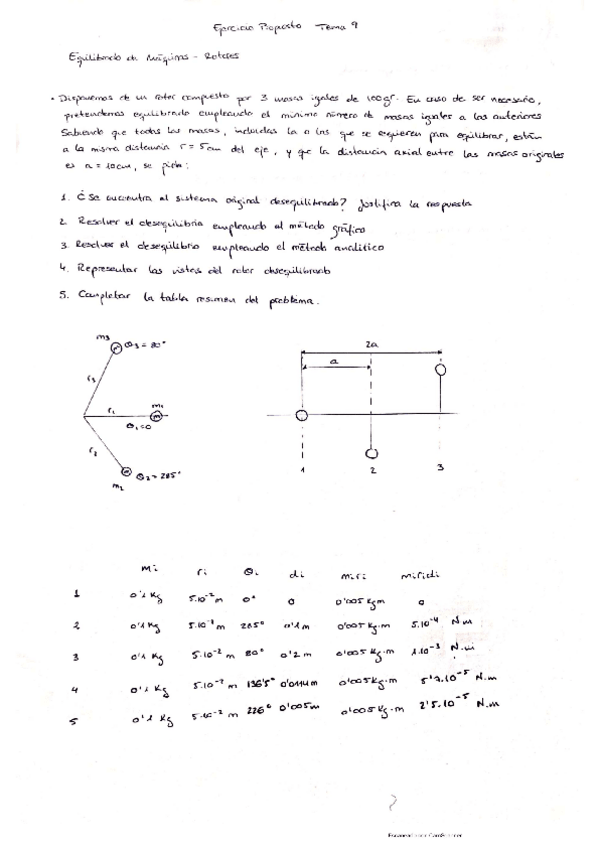 Ejercicio Propuesto Tema 9
Equilibrado de Máquinas - Rotores
• Disponemos de un rotor compuesto por 3 masas iguales de 100gr. En caso de ser necesario,
pretendemos equilibrarlo empleando el mínimo número de masas iguales a las anteriores
Sabiendo que todas las masas, incluidas la o las que se requieren para equilibrar, están
a la misma distancia r = 5cm del eje, y que la distancia axial entre las masas originales
es a = 10cm, se pide:
1. ¿Se encuentra el sistema original desequilibrado? Justifica la respuesta
2. Resolver el desequilibrio empleando el método gráfico
3. Resolver el desequilibrio empleando el método analítico
4. Representar las vistas del rotor
5. Completar la tabla resumen del problema.
m3
θ3 = 80°
r3
r1
m1
m
θ1=0
r2
θ2 = 285°
m2
2a
a
1 2 3
mi ri θi di miri miridi
1 0'1 Kg 5·10⁻² m 0° 0 0'005 Kgm 0
2 0'1 Kg 5·10⁻² m 285° 0'1 m 0'005 Kg·m 5·10⁻⁴ N.m
3 0'1 Kg 5·10⁻² m 80° 0'2 m 0'005 Kg·m 1·10⁻³ N.m
4 0'1 Kg 5·10⁻² m 136'5° 0'0114m 0'005Kg·m 5'7·10⁻⁵ N.m
5 0'1 Kg 5·10⁻² m 226° 0'005m 0'005 Kg·m 2'5·10⁻⁵ N.m